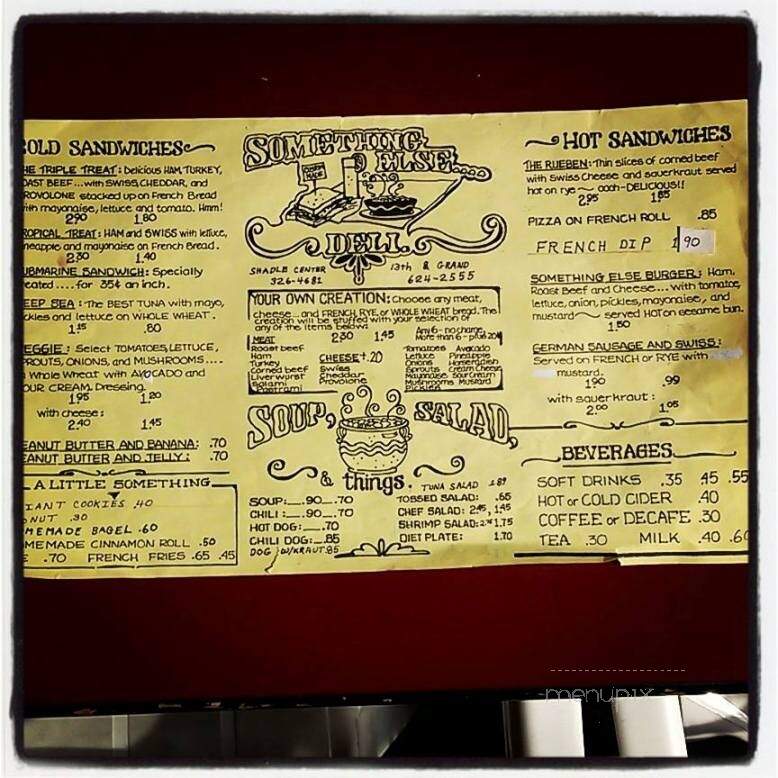 OLD SANDWICHES
HE TRIPLE TREAT: Delicious HAM, TURKEY,
OAST BEEF...with SWISS, CHEDDAR, and
ROVOLONE stacked up on French Bread
ith mayonaise, lettuce and tomato. Hmm!
2.90 1.80
ROPICAL TREAT: HAM and SWISS with lettuce,
ineapple and mayonaise on French Bread.
2.30 1.40
UBMARINE SANDWICH: Specially
reated....for 35¢ an inch.
EEP SEA: The BEST TUNA with mayo,
ckles and lettuce on WHOLE WHEAT.
1.15 .80
EGGIE: Select TOMATOES, LETTUCE,
PROUTS, ONIONS, and MUSHROOMS....
Whole Wheat with AVOCADO and
OUR CREAM. Dressing.
1.95 1.20
with cheese:
2.40 1.45
EANUT BUTTER AND BANANA: .70
EANUT BUTTER AND JELLY: .70
A LITTLE SOMETHING
IANT COOKIES .40
NUT .30
MEMADE BAGEL .60
MEMADE CINNAMON ROLL .50
.70 FRENCH FRIES .65 .45
SOMETHING
ELSE
DELI.
SHADLE CENTER 13th & GRAND
326-4681 624-2555
YOUR OWN CREATION: Choose any meat,
cheese...and FRENCH, RYE, or WHOLE WHEAT bread. The
creation will be stuffed with your selection of
any of the items below:
2.30 1.45
Any 6 - no charge
More than 6 - plus 20¢
MEAT
Roast beef
Ham
Turkey
Corned beef
Liverwurst
Salami
Pastrami
CHEESE + .20
Swiss
Cheddar
Provolone
Tomatoes Avocado
Lettuce Pineapple
Onions Horseradish
Sprouts Cream Cheese
Mayonaise Sour Cream
Mushrooms Mustard
Pickles
SOUP, SALAD,
& things.
SOUP: .90 .70
CHILI: .90 .70
HOT DOG: .70
CHILI DOG: .85
DOG W/KRAUT .85
TUNA SALAD 1.89
TOSSED SALAD: .65
CHEF SALAD: 2.45, 1.45
SHRIMP SALAD: 1.75
DIET PLATE: 1.70
HOT SANDWICHES
THE RUEBEN: Thin slices of corned beef
with Swiss Cheese and sauerkraut served
hot on rye ~ oooh-DELICIOUS!!
2.95 1.85
PIZZA ON FRENCH ROLL .85
FRENCH DIP 1.90
SOMETHING ELSE BURGER: Ham,
Roast Beef and Cheese... with tomatoe,
lettuce, onion, pickles, mayonaise, and
mustard ~ served HOT on sesame bun.
1.80
GERMAN SAUSAGE AND SWISS:
Served on FRENCH or RYE with
mustard.
1.90 .99
with sauerkraut:
2.00 1.05
BEVERAGES
SOFT DRINKS .35 45 .55
HOT or COLD CIDER .40
COFFEE or DECAFE .30
TEA .30 MILK .40 .60
menupix